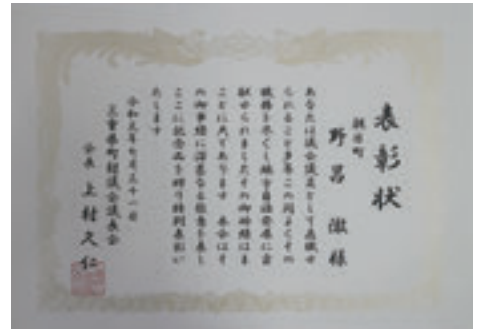 表彰状
野呂 徹 様
あなたは議会議員として在職せ
られること多年この間よくその
職務を尽くし地方自治発展に貢
献せられましたその御功績はま
ことに大であります 本会はそ
の御事績に深甚なる敬意を表し
ここに記念品を贈り特別表彰い
たします
令和元年
三重県町村議会議長会
会長 上村久仁